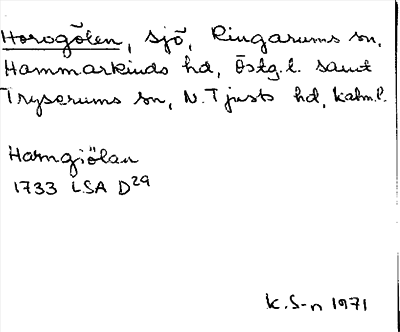 Horogölen, sjö, Ringarums sn,
Hammarkinds hd, Östg.l. samt
Tryserums sn, N. Tjusts hd, Kalm.l.
Harngiölan
1733 LSA D29
K.S-n 1971